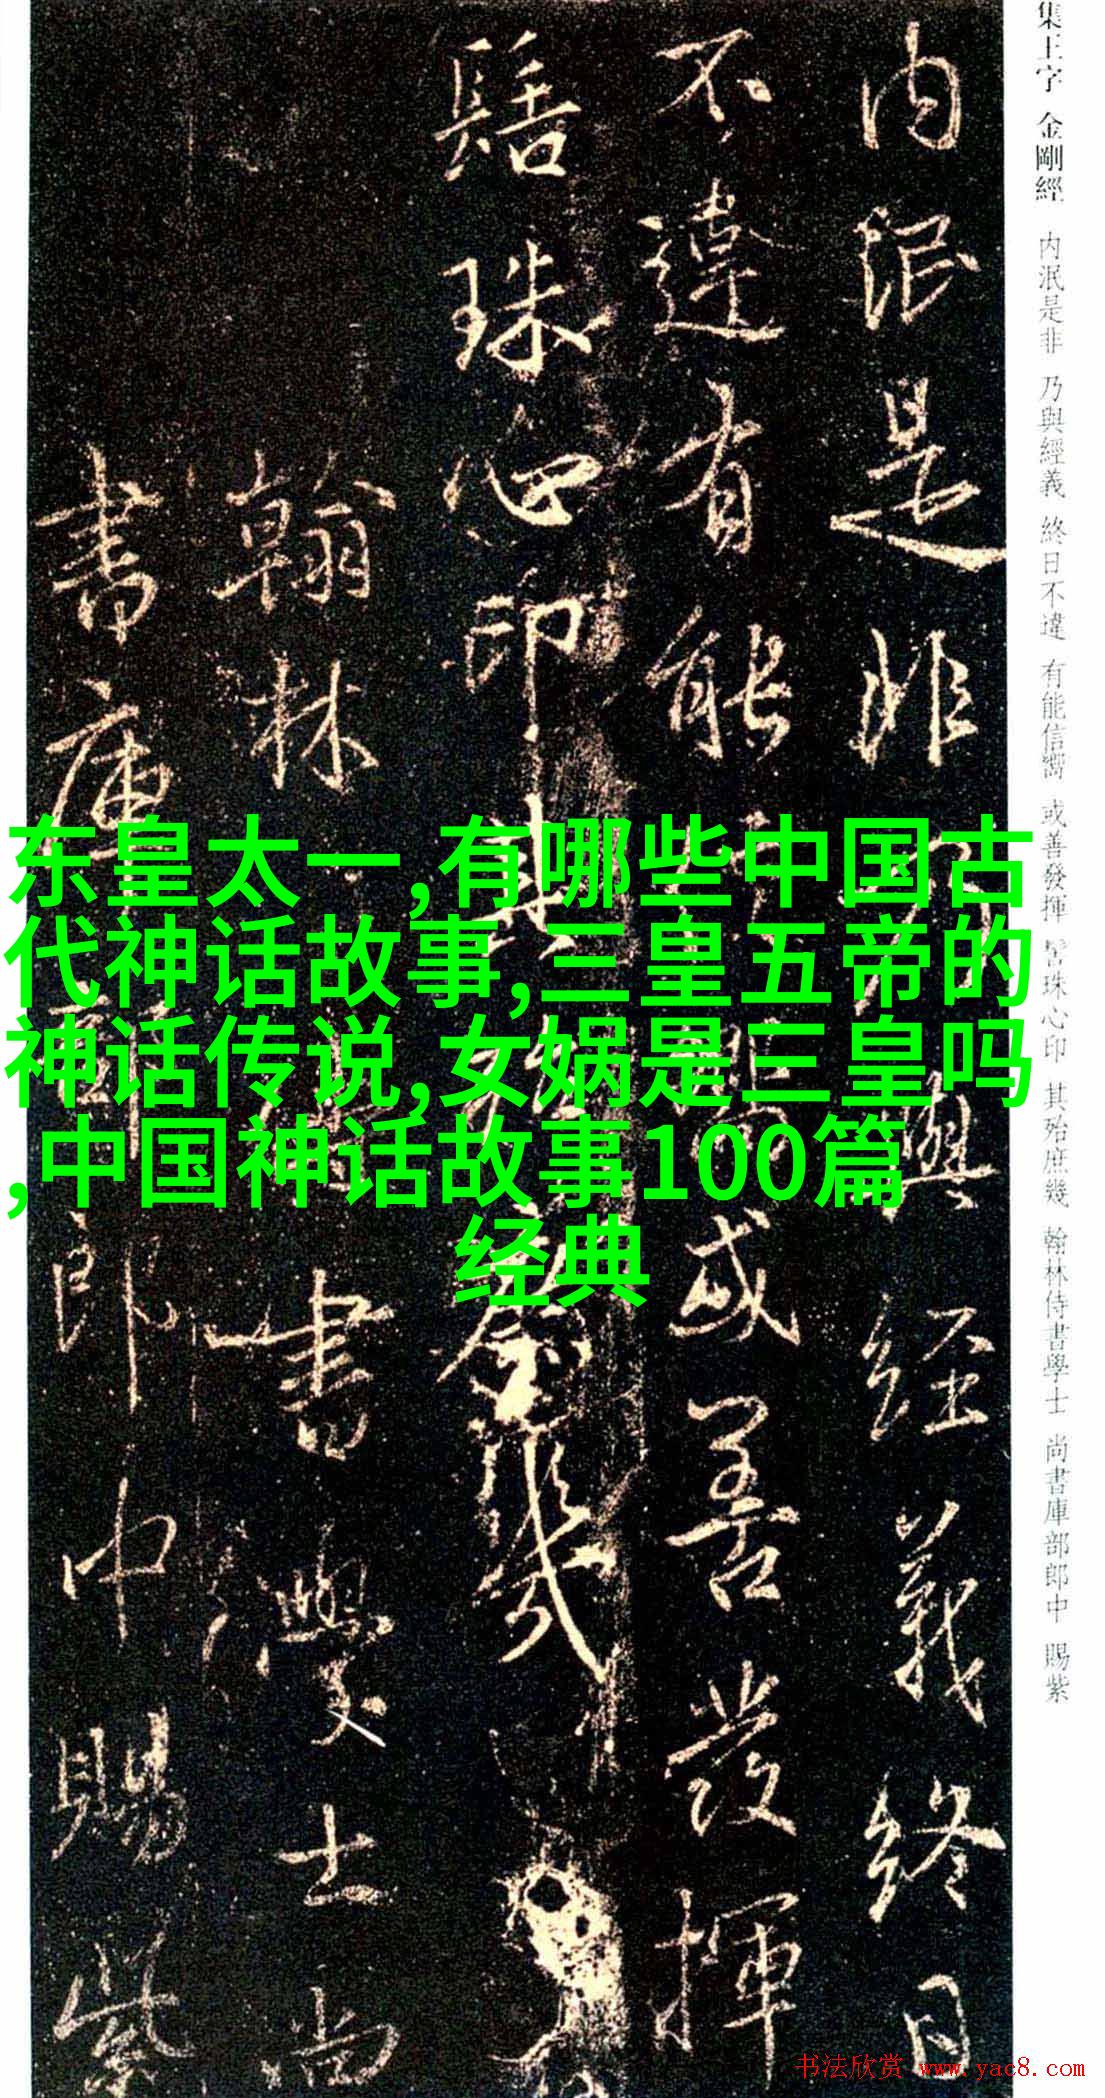 集王字 金剛經 内泯是非 乃與經義 終日不違 有能信嚮 或善發揮 髻珠心印 其殆庶幾 翰林侍書學士 尚書庫部郎中 賜紫
内泯是非乃與經義終日
不違有能信嚮或善發揮
髻珠心印其殆庶幾
翰林侍書學士尚
書庫部郎中賜紫
东皇太一,有哪些中国古
代神话故事,三皇五帝的
神话传说,女娲是三皇吗
,中国神话故事100篇
经典
书法欣赏 www.yac8.com